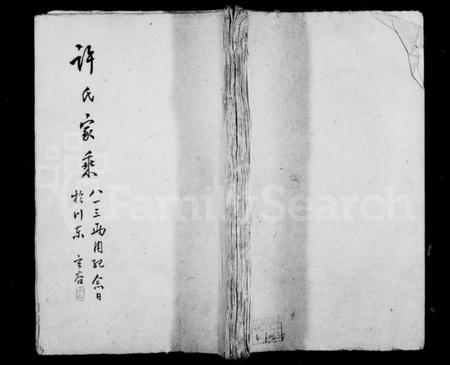 许氏家乘
八一三两周纪念日
于川东
FamilySearch